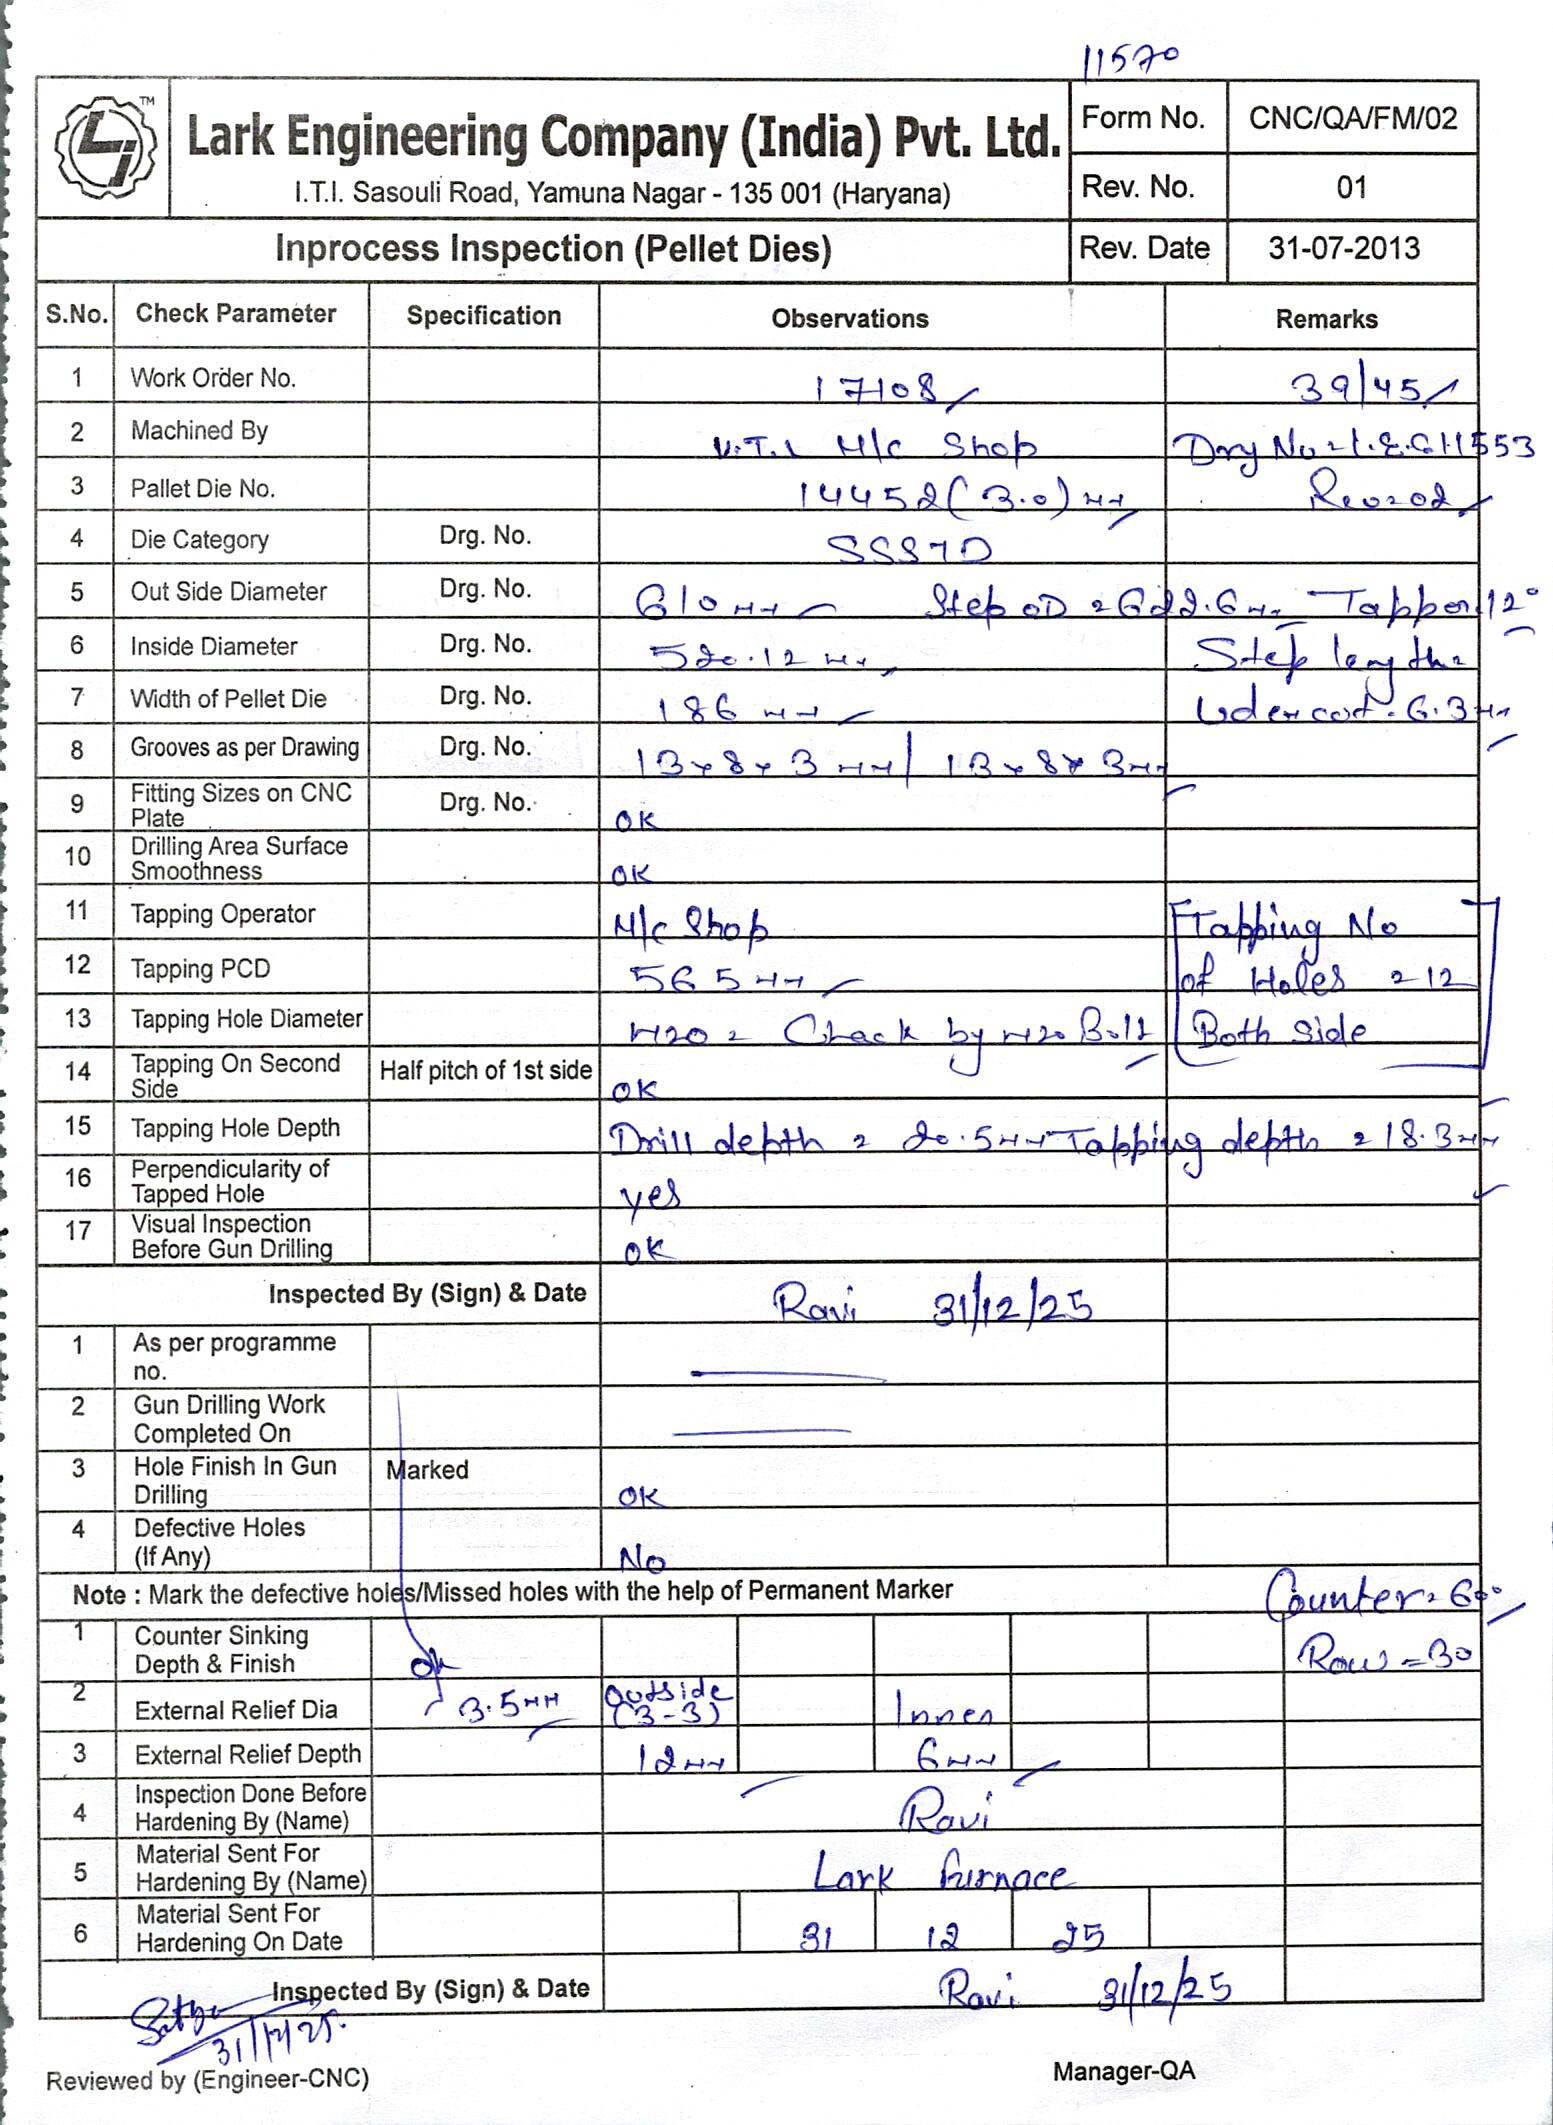 11570
TM
Lark Engineering Company (India) Pvt. Ltd.
I.T.I. Sasouli Road, Yamuna Nagar - 135 001 (Haryana)
Form No. CNC/QA/FM/02
Rev. No. 01
Inprocess Inspection (Pellet Dies) Rev. Date 31-07-2013
S.No. Check Parameter Specification Observations Remarks
1 Work Order No. 17108 39/45
2 Machined By M/c Shop
3 Pallet Die No. 14452 (3.0) mm
4 Die Category Drg. No.
5 Out Side Diameter Drg. No. 610 mm Step OD = 622.6 mm Tapper 12°
6 Inside Diameter Drg. No. 520.12 mm Step length =
7 Width of Pellet Die Drg. No. 186 mm 6.3 mm
8 Grooves as per Drawing Drg. No. 13 x 8 x 3 mm / 13 x 8 x 3 mm
9 Fitting Sizes on CNC Plate Drg. No. OK
10 Drilling Area Surface Smoothness OK
11 Tapping Operator M/c Shop Tapping No
12 Tapping PCD 565 mm of Holes = 12
13 Tapping Hole Diameter M20 = Check by M20 Bolt Both Side
14 Tapping On Second Side Half pitch of 1st side OK
15 Tapping Hole Depth Drill depth = 20.5 mm Tapping depth = 18.3 mm
16 Perpendicularity of Tapped Hole yes
17 Visual Inspection Before Gun Drilling OK
Inspected By (Sign) & Date Ravi 31/12/25
1 As per programme no.
2 Gun Drilling Work Completed On
3 Hole Finish In Gun Drilling Marked OK
4 Defective Holes (If Any) No
Note : Mark the defective holes/Missed holes with the help of Permanent Marker Counter = 60°
1 Counter Sinking Depth & Finish ok Row = 30
2 External Relief Dia 3.5 mm Outside (3-3) Inner
3 External Relief Depth 12 mm 6 mm
4 Inspection Done Before Hardening By (Name) Ravi
5 Material Sent For Hardening By (Name) Lark Furnace
6 Material Sent For Hardening On Date 31 12 25
Inspected By (Sign) & Date Ravi 31/12/25
31/12/25.
Reviewed by (Engineer-CNC) Manager-QA